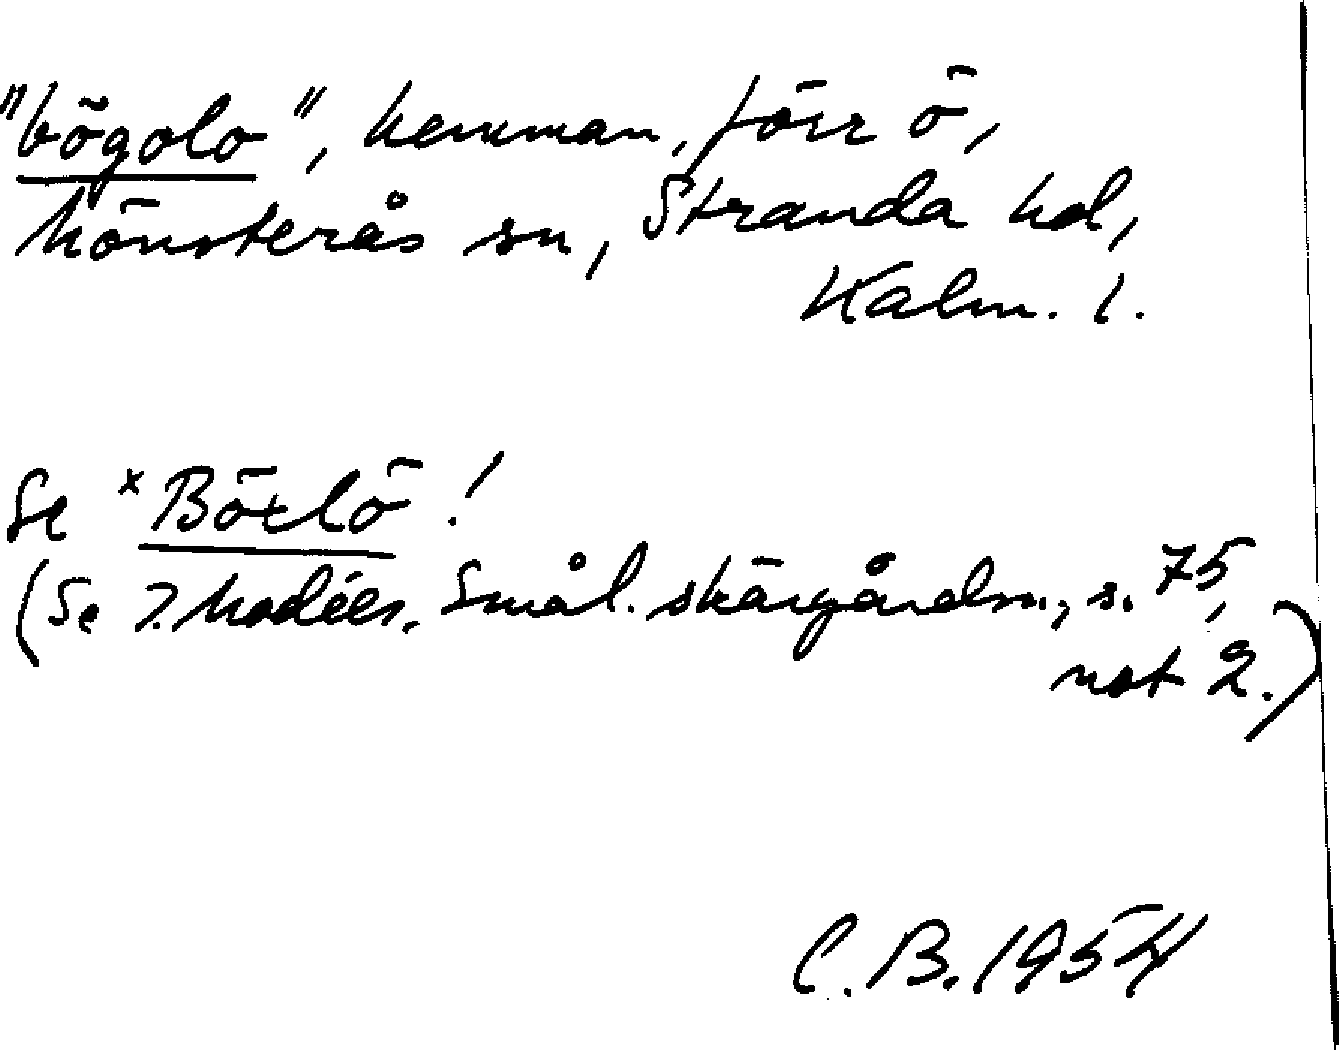 "bögolo", hemman, förr ö,
Mönsterås sn, Stranda hd,
Kalm. l.
Se *Böxlö!
(Se I. Modéer, Smål. skärgårdsn., s. 75,
not 2.)
C.B. 1954